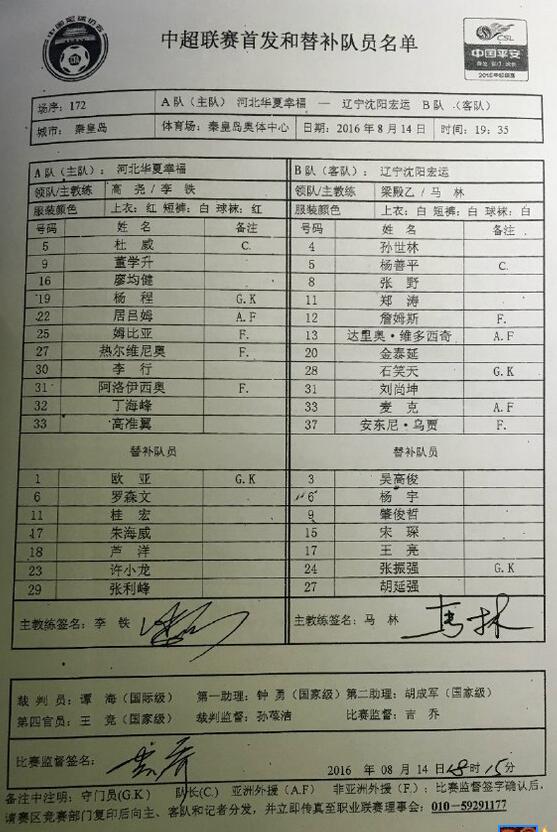 中国足球协会
中超联赛首发和替补队员名单
CSL
中国平安
2016中超联赛
场序: 172 A队(主队) 河北华夏幸福 — 辽宁沈阳宏运 B队(客队)
城市: 秦皇岛 体育场: 秦皇岛奥体中心 日期: 2016年8月14日 时间: 19:35
A队(主队): 河北华夏幸福 B队(客队): 辽宁沈阳宏运
领队/主教练 高 尧/李 铁 领队/主教练 梁殿乙/马 林
服装颜色 上衣: 红 短裤: 白 球袜: 红 服装颜色 上衣: 白 短裤: 白 球袜: 白
号码 姓 名 备注 号码 姓 名 备注
5 杜 威 C. 4 孙世林
9 董学升 5 杨善平 C.
16 廖均健 8 张 野
19 杨 程 G.K 11 郑 涛
22 居吕姆 A.F 12 詹姆斯 F.
25 姆比亚 F. 13 达里奥·维多西奇 A.F
27 热尔维尼奥 F. 20 金泰延
30 李 行 28 石笑天 G.K
31 阿洛伊西奥 F. 31 刘尚坤
32 丁海峰 33 麦 克 A.F
33 高准翼 37 安东尼·乌贾 F.
替补队员 替补队员
1 欧 亚 G.K 3 吴高俊
6 罗森文 6 杨 宇
11 桂 宏 9 肇俊哲
17 朱海威 15 宋 琛
18 芦 洋 17 王 亮
23 许小龙 24 张振强 G.K
29 张利峰 27 胡延强
主教练签名: 李 铁 主教练签名: 马 林 马林
裁判员: 谭 海(国际级) 第一助理: 钟 勇(国家级) 第二助理: 胡成军(国家级)
第四官员: 王 竞(国家级) 裁判监督: 孙葆洁 比赛监督: 言 乔
比赛监督签名:
2016 年 08 月 14 日 18时15分
备注中注明: 守门员(G.K) 队长(C.) 亚洲外援(A.F) 非亚洲外援(F.); 比赛监督签字确认后,
请赛区竞赛部门复印后向主、客队和记者分发, 并立即传真至职业联赛理事会: 010-59291177